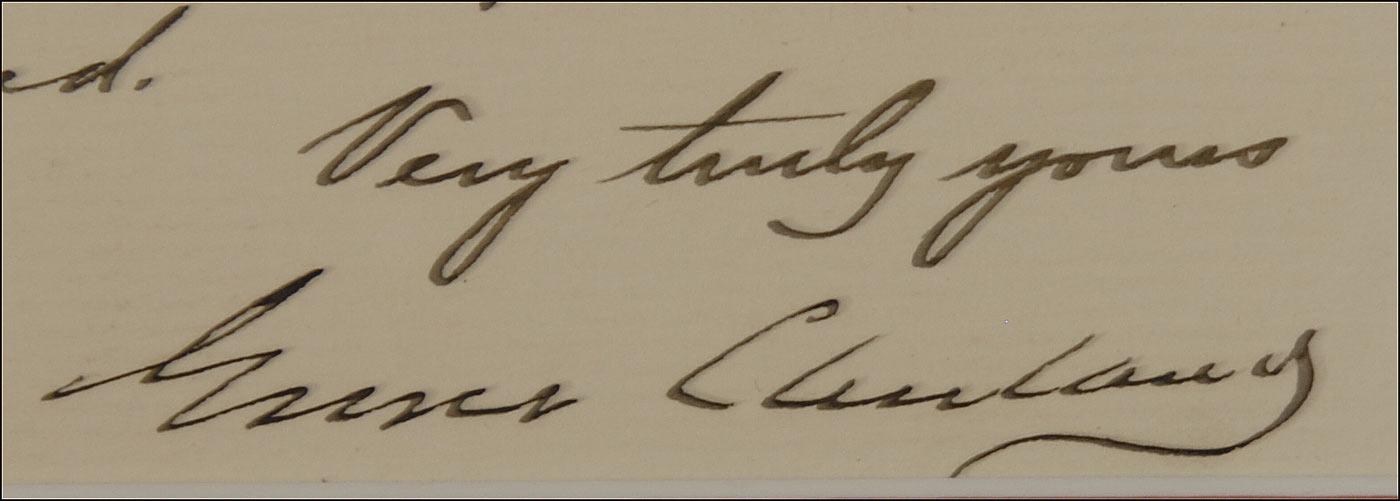 ed.
Very truly yours
Grover Cleveland